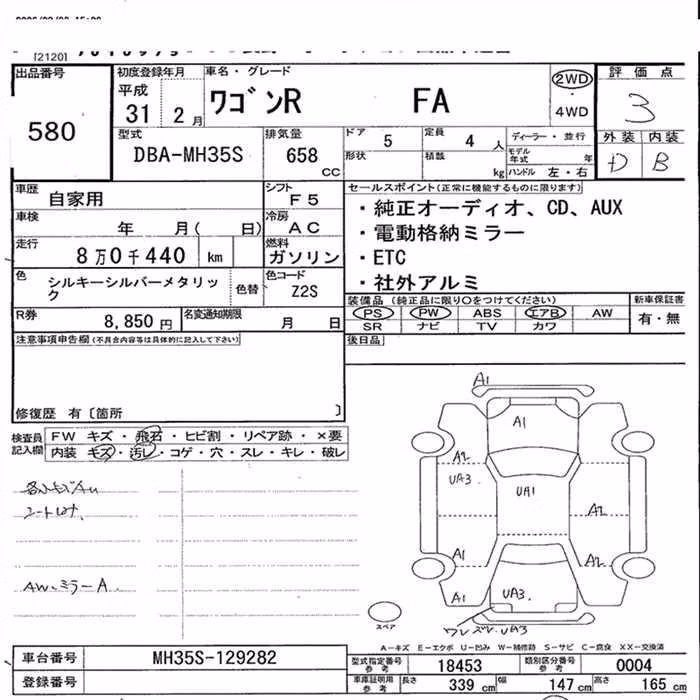 [2120]
出品番号
580
初度登録年月
平成
31 2月
車名・グレード
ワゴンR FA
2WD
・
4WD
評価点
3
型式
DBA-MH35S
排気量
658 CC
ドア 5
定員 4 人
形状
積載 kg
ディーラー・並行
モデル年式 年
ハンドル 左・右
外装 内装
D B
車歴 自家用
シフト F5
車検 年 月( 日)
冷房 AC
走行 8万0千440 km
燃料 ガソリン
色 シルキーシルバーメタリック
色替
色コード Z2S
R券 8,850円
名変通知期限 月 日
セールスポイント(正常に機能するものに限ります)
・純正オーディオ、CD、AUX
・電動格納ミラー
・ETC
・社外アルミ
装備品(純正品に限り○をつけてください)
PS PW ABS エアB AW
SR ナビ TV カワ
新車保証書
有・無
注意事項申告欄(不具合内容等は具体的に記入して下さい)
後日品
修復歴 有〔箇所 〕
検査員記入欄
FW キズ・飛石・ヒビ割・リペア跡・×要
内装 キズ・汚レ・コゲ・穴・スレ・キレ・破レ
AW、ミラーA
A1
A1
A2
UA3
UA1
A2
A1
A2
A1
UA3
UA3
スペア
A-キズ E-エクボ U-凹み W-補修跡 S-サビ C-腐食 XX-交換済
車台番号 MH35S-129282
登録番号
型式指定番号 参考 18453
類別区分番号 参考 0004
車庫証明用 参考
長さ 339 cm
幅 147 cm
高さ 165 cm